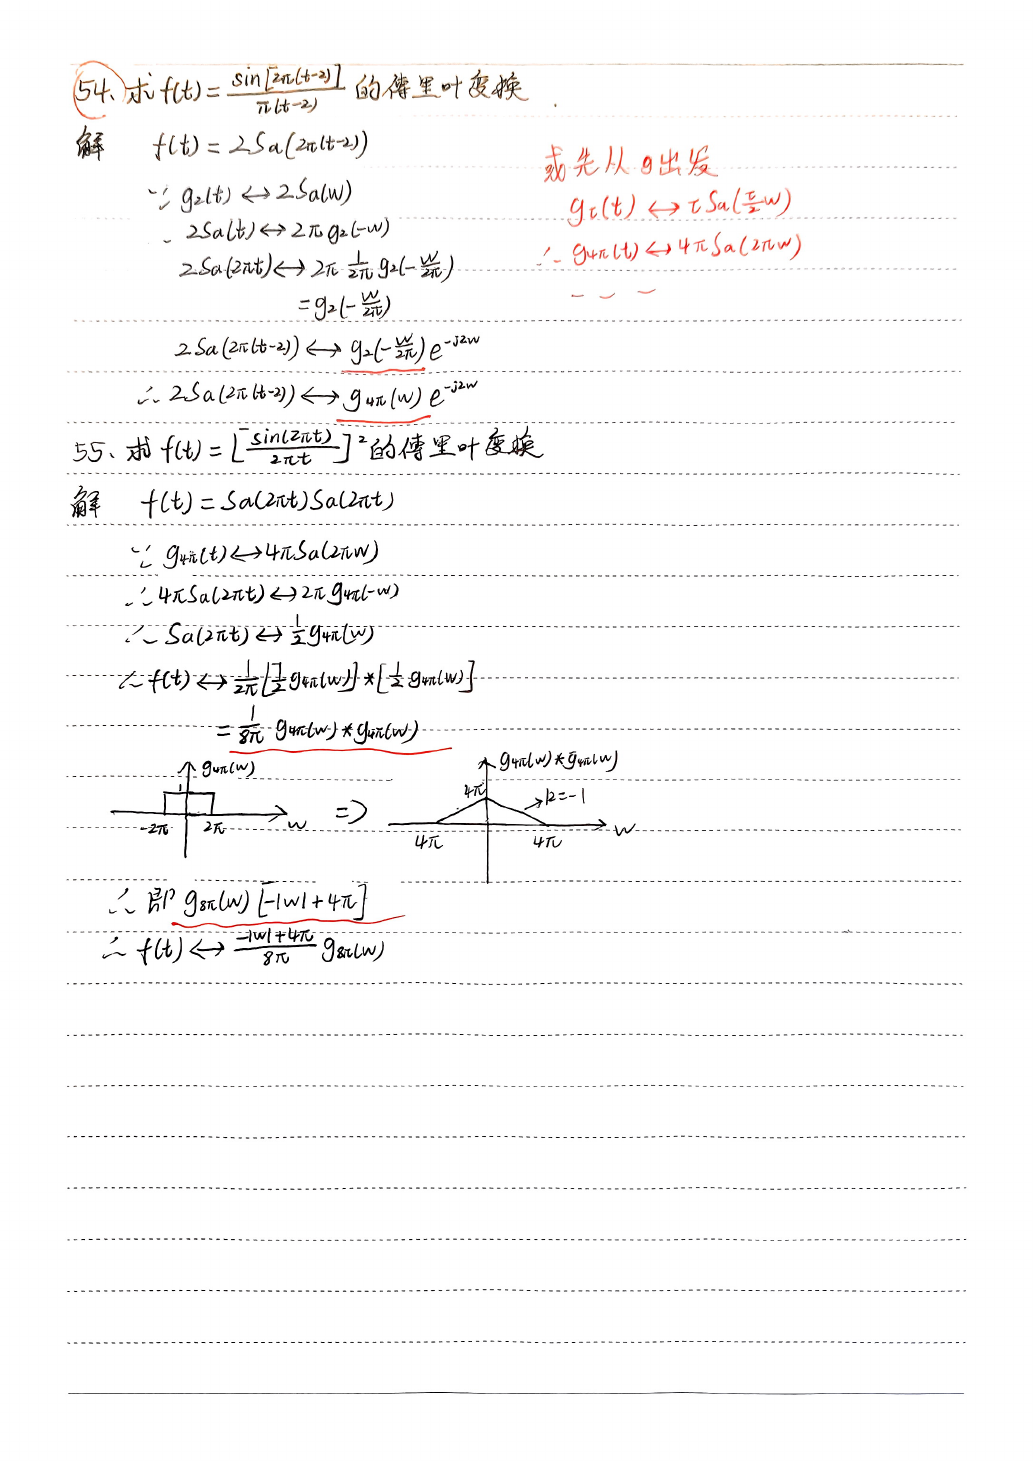 54、求 f(t) = sin[2π(t-2)] / π(t-2) 的傅里叶变换
解 f(t) = 2Sa(2π(t-2))
∵ g₂(t) ↔ 2Sa(w)
∴ 2Sa(t) ↔ 2π g₂(-w)
2Sa(2πt) ↔ 2π 1/2π g₂(-w/2π)
= g₂(-w/2π)
2Sa(2π(t-2)) ↔ g₂(-w/2π) e^(-j2w)
∴ 2Sa(2π(t-2)) ↔ g₄π(w) e^(-j2w)
或先从 g 出发
gτ(t) ↔ τSa(τ/2 w)
∴ g₄π(t) ↔ 4πSa(2πw)
55、求 f(t) = [sin(2πt) / 2πt]² 的傅里叶变换
解 f(t) = Sa(2πt)Sa(2πt)
∵ g₄π(t) ↔ 4πSa(2πw)
∴ 4πSa(2πt) ↔ 2π g₄π(-w)
∴ Sa(2πt) ↔ 1/2 g₄π(w)
∴ f(t) ↔ 1/2π [1/2 g₄π(w)] * [1/2 g₄π(w)]
= 1/8π g₄π(w) * g₄π(w)
g₄π(w)
1
-2π 2π w
⇒
g₄π(w) * g₄π(w)
4π
k=-1
4π 4π w
∴ 即 g₈π(w) [-|w|+4π]
∴ f(t) ↔ -|w|+4π / 8π g₈π(w)